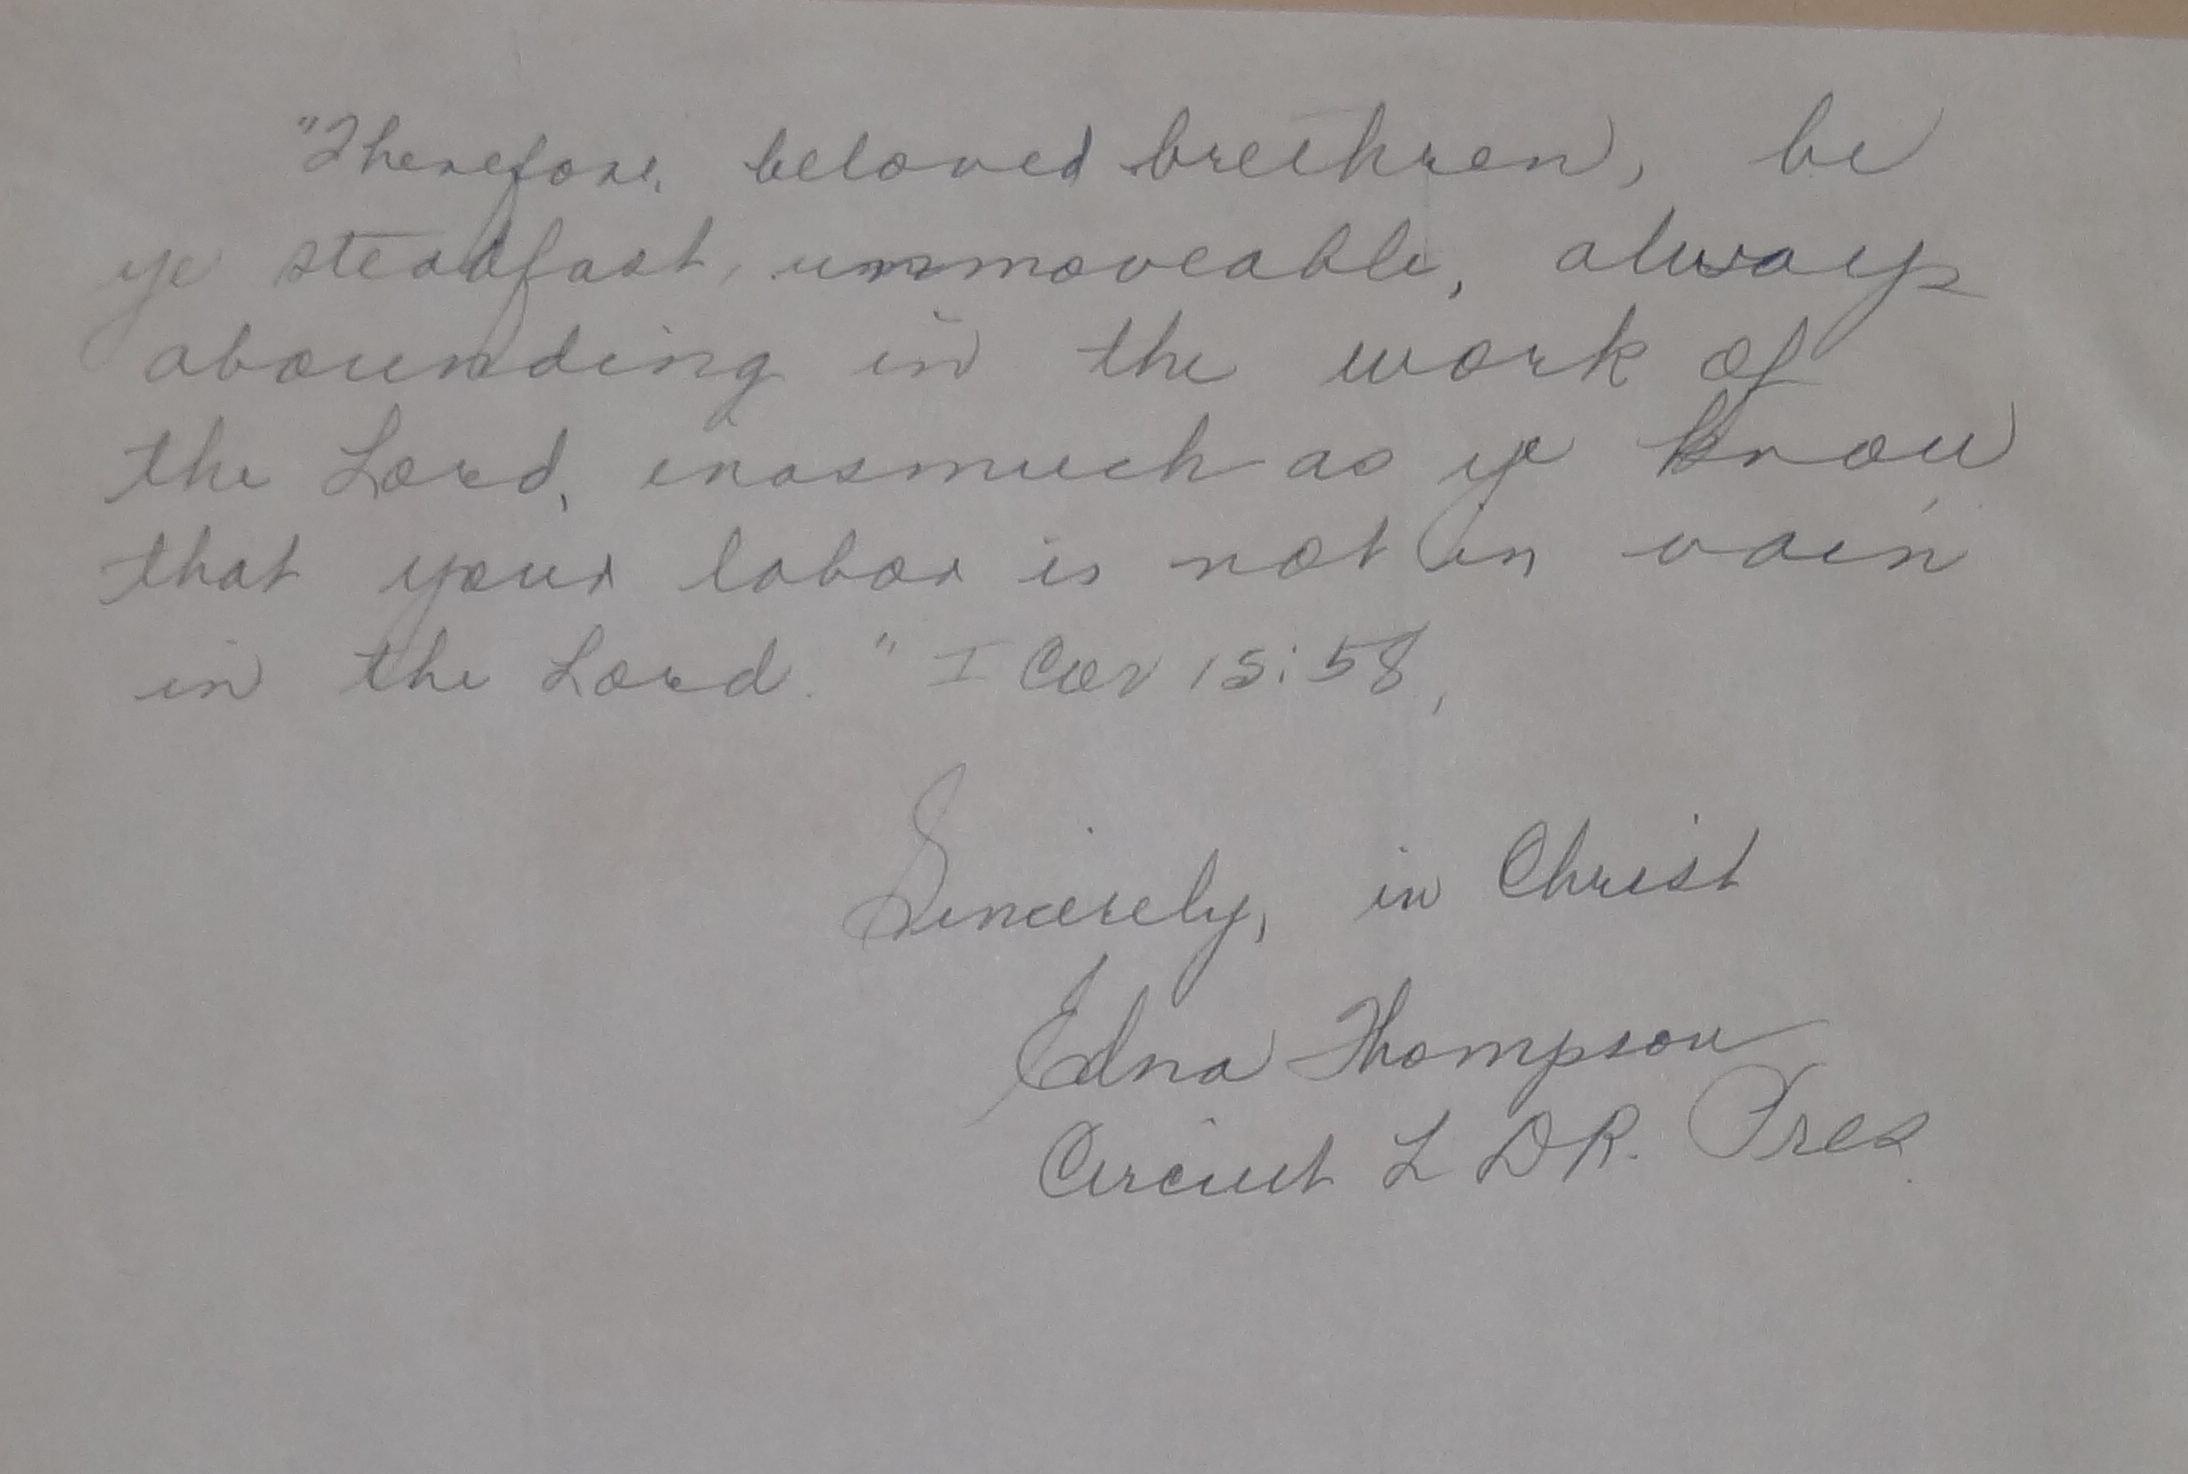 "Therefore, beloved brethren, be
ye steadfast, unmoveable, always
abounding in the work of
the Lord, inasmuch as ye know
that your labor is not in vain
in the Lord." I Cor 15:58,
Sincerely, in Christ
Edna Thompson
Circuit L D R. Pres.